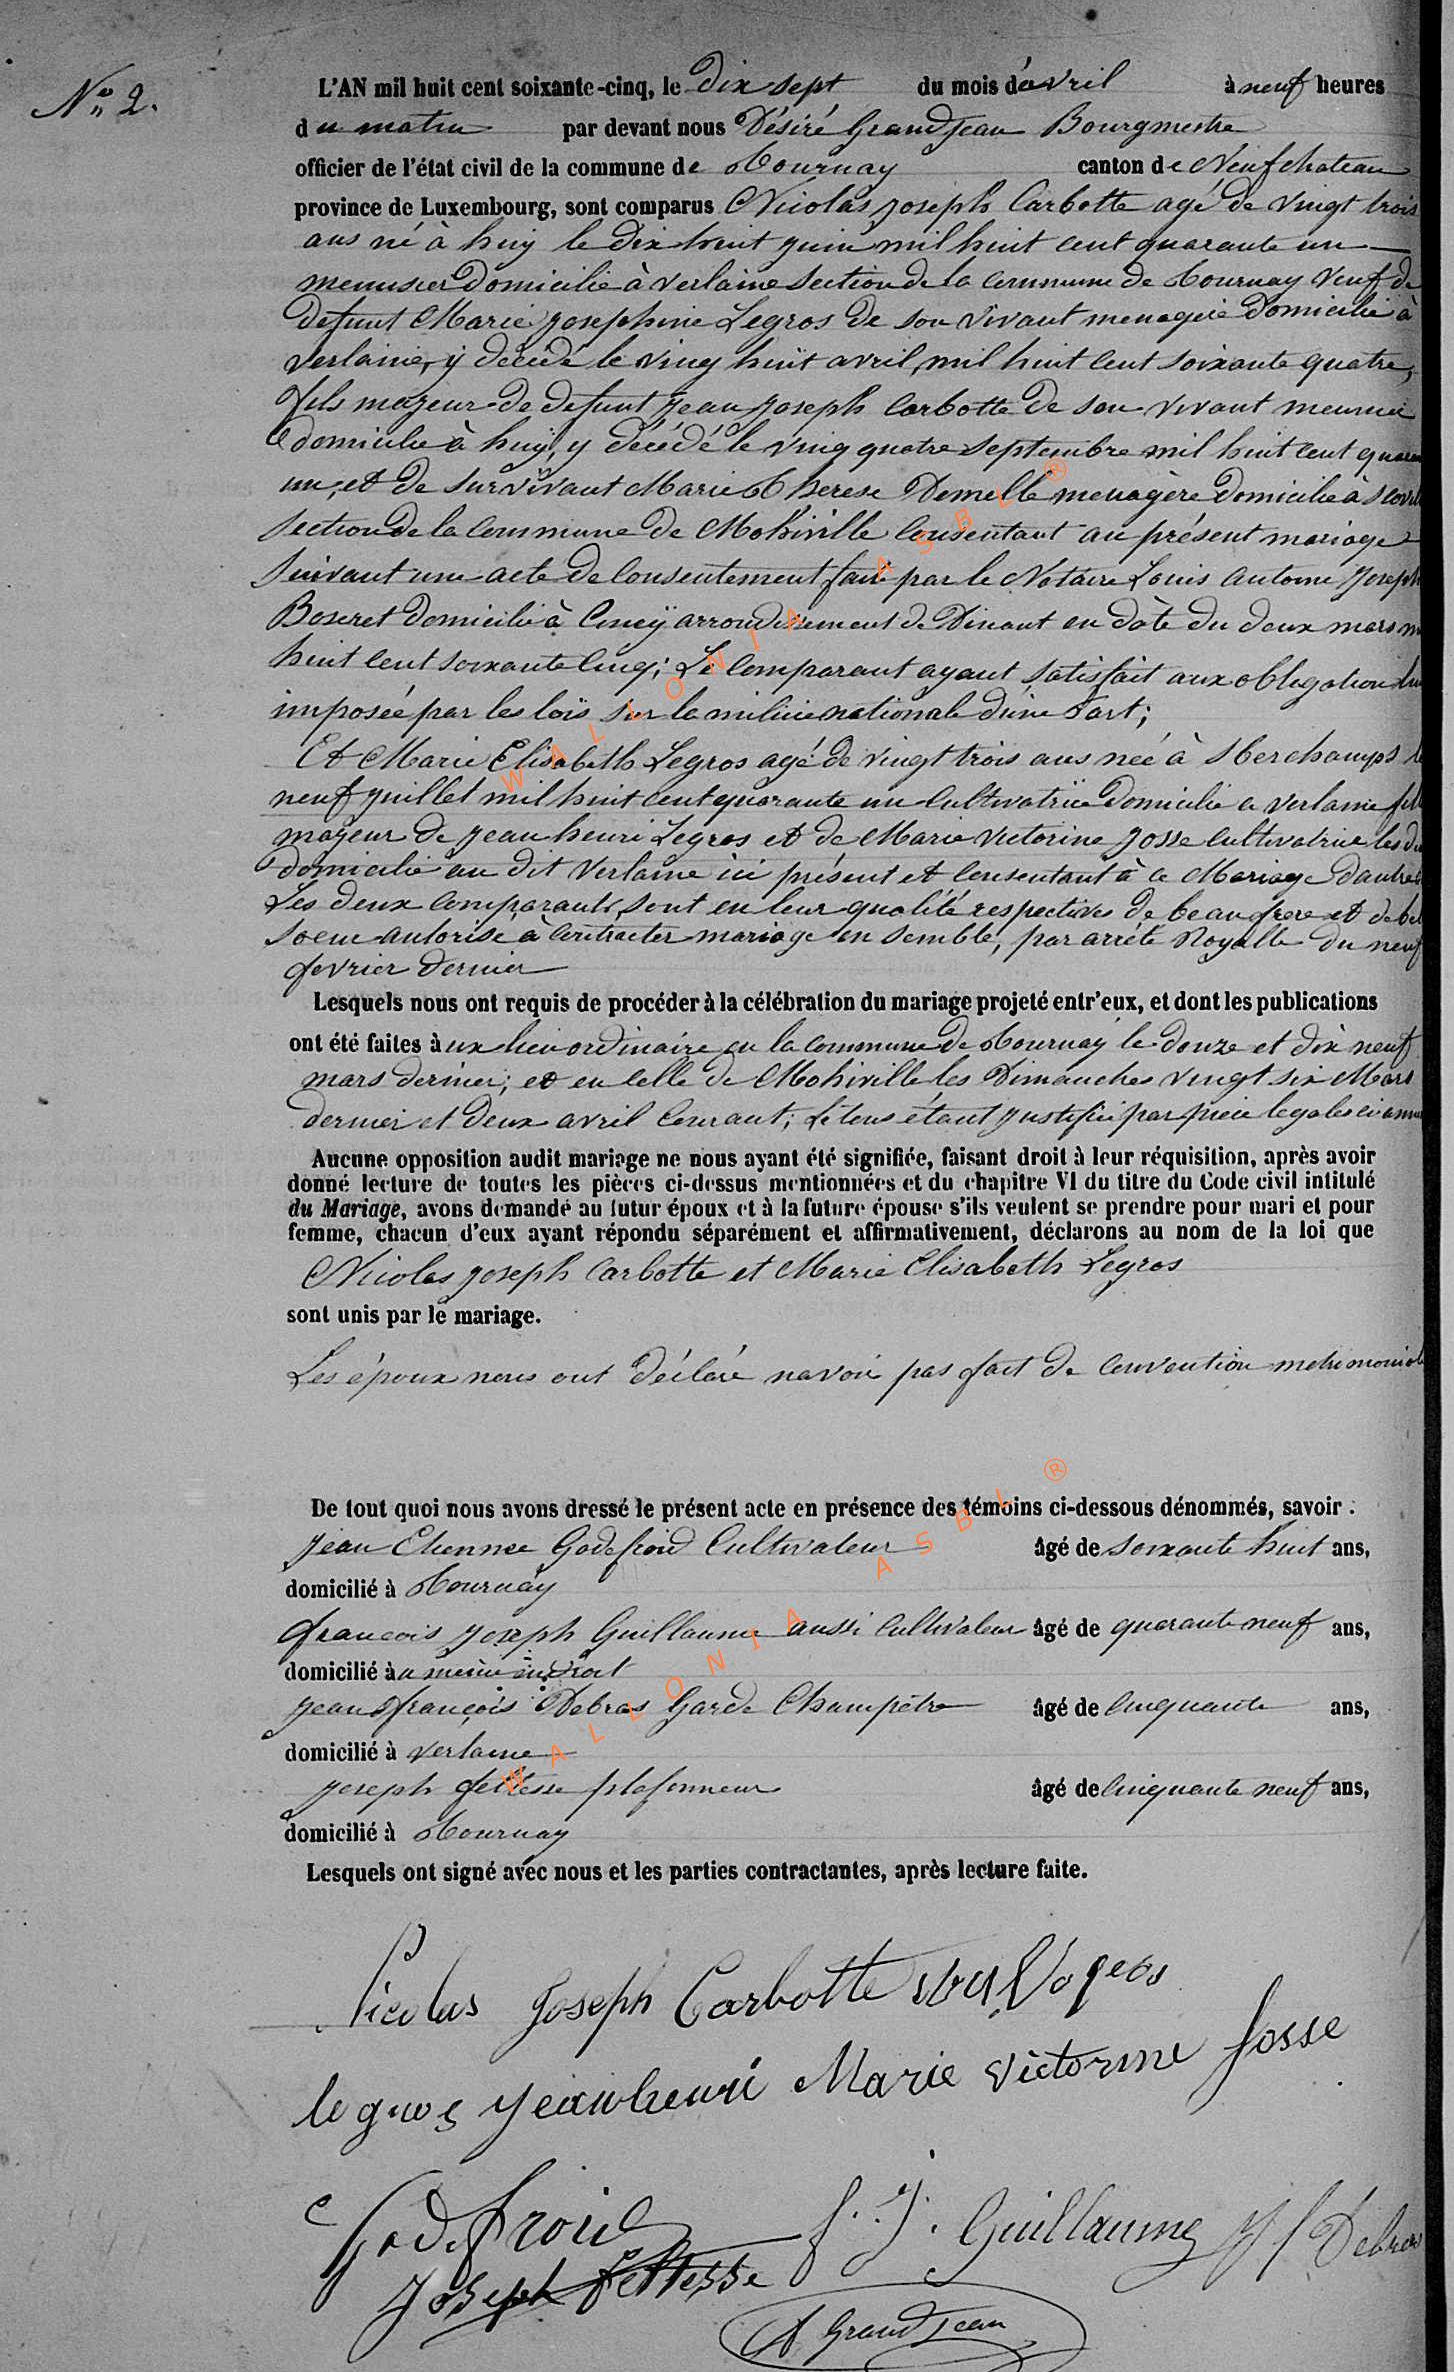 N° 2.
L'AN mil huit cent soixante-cinq, le dix sept du mois d'avril à neuf heures
du matin par devant nous Désiré Grandjean Bourgmestre
officier de l'état civil de la commune de Tournay canton de Neufchateau
province de Luxembourg, sont comparus Nicolas Joseph Carbotte agé de vingt trois
ans né à huy le dix huit juin mil huit cent quarante un
menusier domicilié à verlaine section de la commune de Tournay veuf de
defunt Marie Josephine Legros de son vivant menagère domicilié à
verlaine, y décédé le ving huit avril, mil huit cent soixante quatre,
fils majeur de defunt Jean Joseph Carbotte de son vivant meunier
domicilié à huy, y décédé le ving quatre septembre mil huit cent quaran
un, et de survivant Marie Therese Demelle menagère domicilié à
section de la commune de Mohiville consentant au présent mariage
suivant une acte de consentement fait par le Notaire Louis Antoine Joseph
Boseret domicilié à Ciney arrondissement de Dinant en date du deux mars m
huit cent soixante cinq; Le comparant ayant satisfait aux obligation lui
imposée par les lois sur la milice nationale d'une part;
Et Marie Elisabeth Legros agé de vingt trois ans née à Sberchamps le
neuf juillet mil huit cent quarante un cultivatrice domicilié a verlaine fill
majeur de Jean henri Legros et de Marie Victorine Josse cultivatrice les d
domicilié au dit Verlaine ici présent et consentant à ce Mariage d'autre
Les deux comparants, sont en leur qualité respectives de beaufrere et de bel
soeur autorise à contracter mariage en semble, par arrêté Royalle du neuf
fevrier dernier
Lesquels nous ont requis de procéder à la célébration du mariage projeté entr'eux, et dont les publications
ont été faites aux lieu ordinaire en la commune de Tournay le douze et dix neuf
mars dernier, et en celle de Mohiville les Dimanches vingt six Mars
dernier et deux avril courant; le tous étant justifié par piece legales ci anne
Aucune opposition audit mariage ne nous ayant été signifiée, faisant droit à leur réquisition, après avoir
donné lecture de toutes les pièces ci-dessus mentionnées et du chapitre VI du titre du Code civil intitulé
du Mariage, avons demandé au futur époux et à la future épouse s'ils veulent se prendre pour mari et pour
femme, chacun d'eux ayant répondu séparément et affirmativement, déclarons au nom de la loi que
Nicolas Joseph Carbotte et Marie Elisabeth Legros
sont unis par le mariage.
Les époux nous ont déclaré navoir pas fait de convention matrimonial
De tout quoi nous avons dressé le présent acte en présence des témoins ci-dessous dénommés, savoir :
Jean Etienne Godefroid Cultivateur âgé de soixante huit ans,
domicilié à Tournay
francois Joseph Guillaume aussi cultivateur âgé de quarante neuf ans,
domicilié à u même endroit
Jean françois Debras Garde Champêtre âgé de cinquante ans,
domicilié à verlaine
Joseph fettesse plafonneur âgé de cinquante neuf ans,
domicilié à Tournay
Lesquels ont signé avec nous et les parties contractantes, après lecture faite.
Nicolas Joseph Carbotte
legros jeanhenri Marie victorine Josse
Godefroid f. J. Guillaume J f Debras
Joseph fettesse
D Grandjean
WALLONIA ASBL ®
WALLONIA ASBL ®